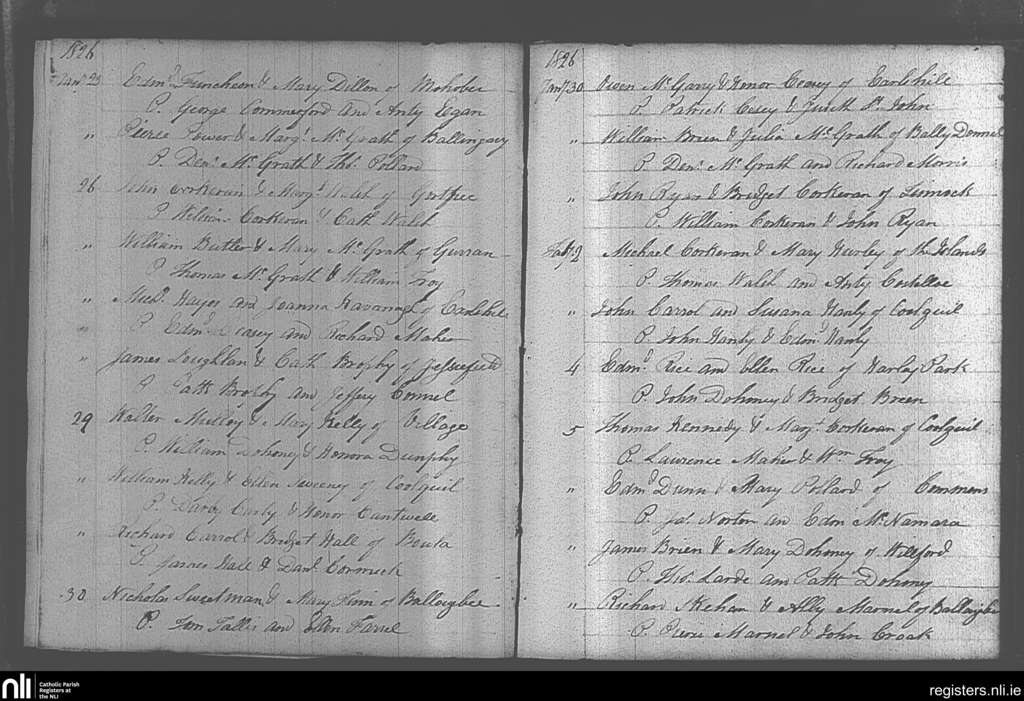 1826
Jany 23 Edmd Funcheon & Mary Dillon of Mohober
P. George Commerford and Anty Egan
" Pierse Power & Margt McGrath of Ballingary
P. Dens McGrath & Thos Pollard
26 John Corkeran & Margt Walsh of
P. William Corkeran & Cath Walsh
" William Butler & Mary McGrath of Gurran
P. Thomas McGrath & William Troy
" Michl Hayes and Joanna Kavanagh of Earlshill
" P. Edmd Casey and Richard Maher
" James Loughlan & Cath Brophy of
P. Patk Brophy and Jeffery Connel
29 Walter Mulloy & Mary Kelly of Village
P. William Dohoney & Honora Dunphy
" William Kelly & Ellen Sweeney of Coolquil
P. Darby Carty & Honor Cantwell
" Richard Carrol & Bridget Hall of Boula
P. James Hall & Danl Cormick
30 Nicholas Sweetman & Mary Finn of Ballaigbee
P. Jon Tallis and Ellen Farrel
1826
Jany 30 Owen McGarry & Honor Ceasey of Earlshill
P. Patrick Casey & Judith St. John
" William Brien & Julia McGrath of Bally Donnel
P. Denl McGrath and Richard Morris
" John Ryan & Bridget Corkeran of Lismock
P. William Corkeran & John Ryan
Faby 2 Michael Corkeran & Mary Hurley of the Islands
P. Thomas Walsh and Anty Costelloe
" John Carrol and Susana Hanly of Coolquil
P. John Hanly & Edmd Hanly
4 Edmd Rice and Ellen Rice of Harley Park
P. John Dohoney & Bridget Breen
5 Thomas Kennedy & Margt Corkeran of Coolquil
P. Laurence Maher & Wm Troy
" Edmd Dunn & Mary Pollard of Commons
P. Jas Norton an Edm McNamara
" James Brien & Mary Dohoney of Willford
P. Thos Larde and Patk Dohony
" Richard Skehan & Ally Marnel of Ballaigbee
P. Pierse Marnel & John Croak
nli
Catholic Parish
Registers at
the NLI
registers.nli.ie